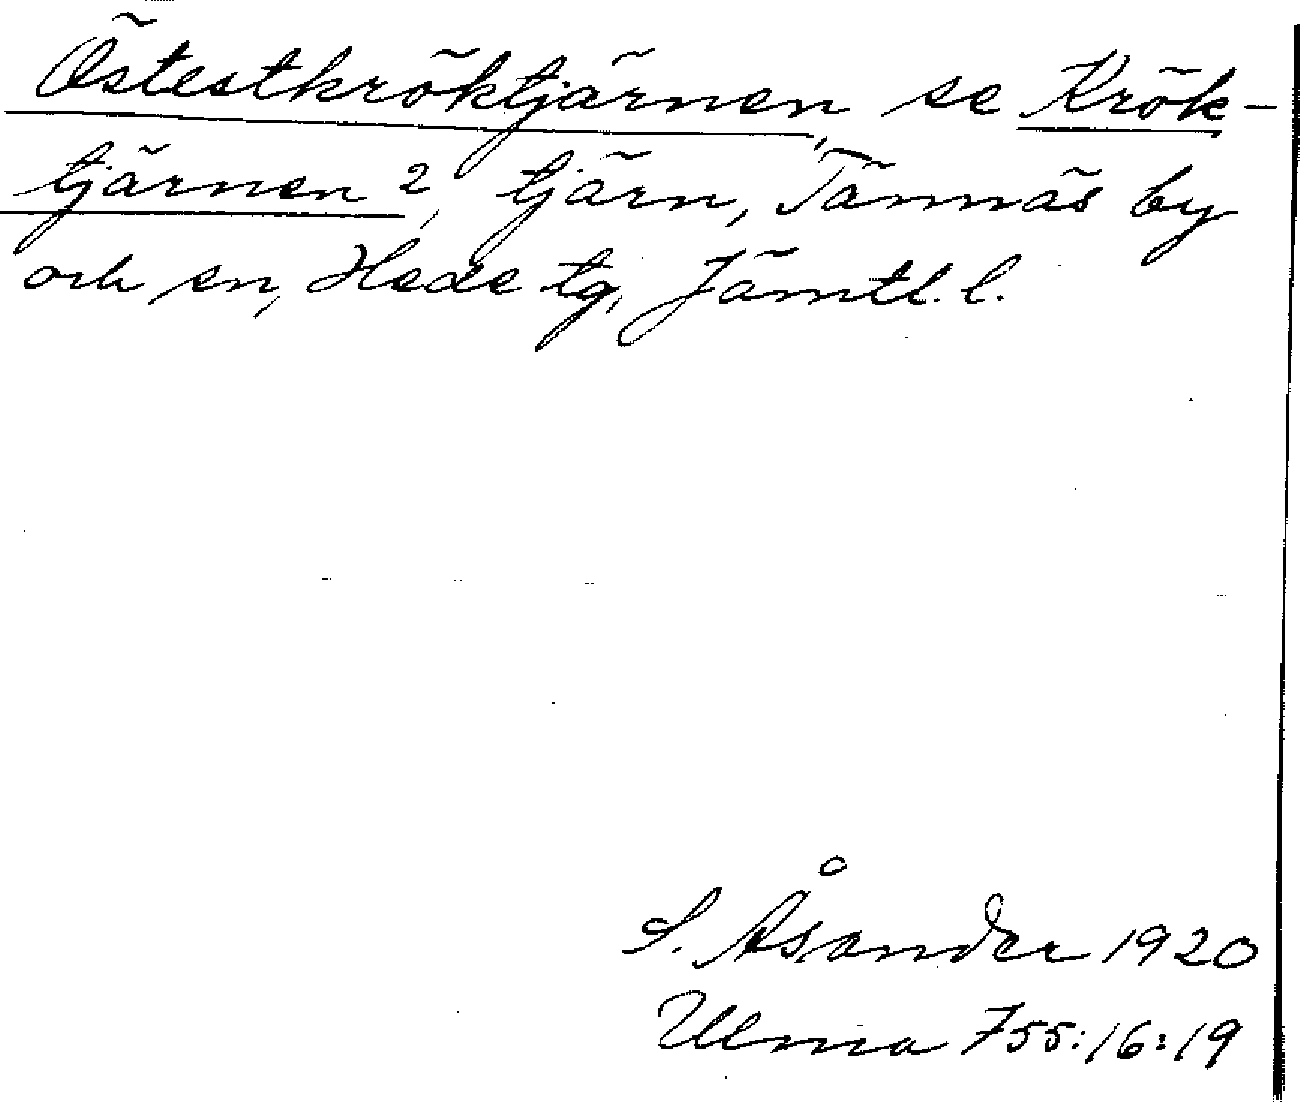 Östestkröktjärnen, se Krök-
tjärnen 2, tjärn, Tännäs by
och sn, Hede tg, Jämtl. l.
S. Åsander 1920
Ulma 755:16:19